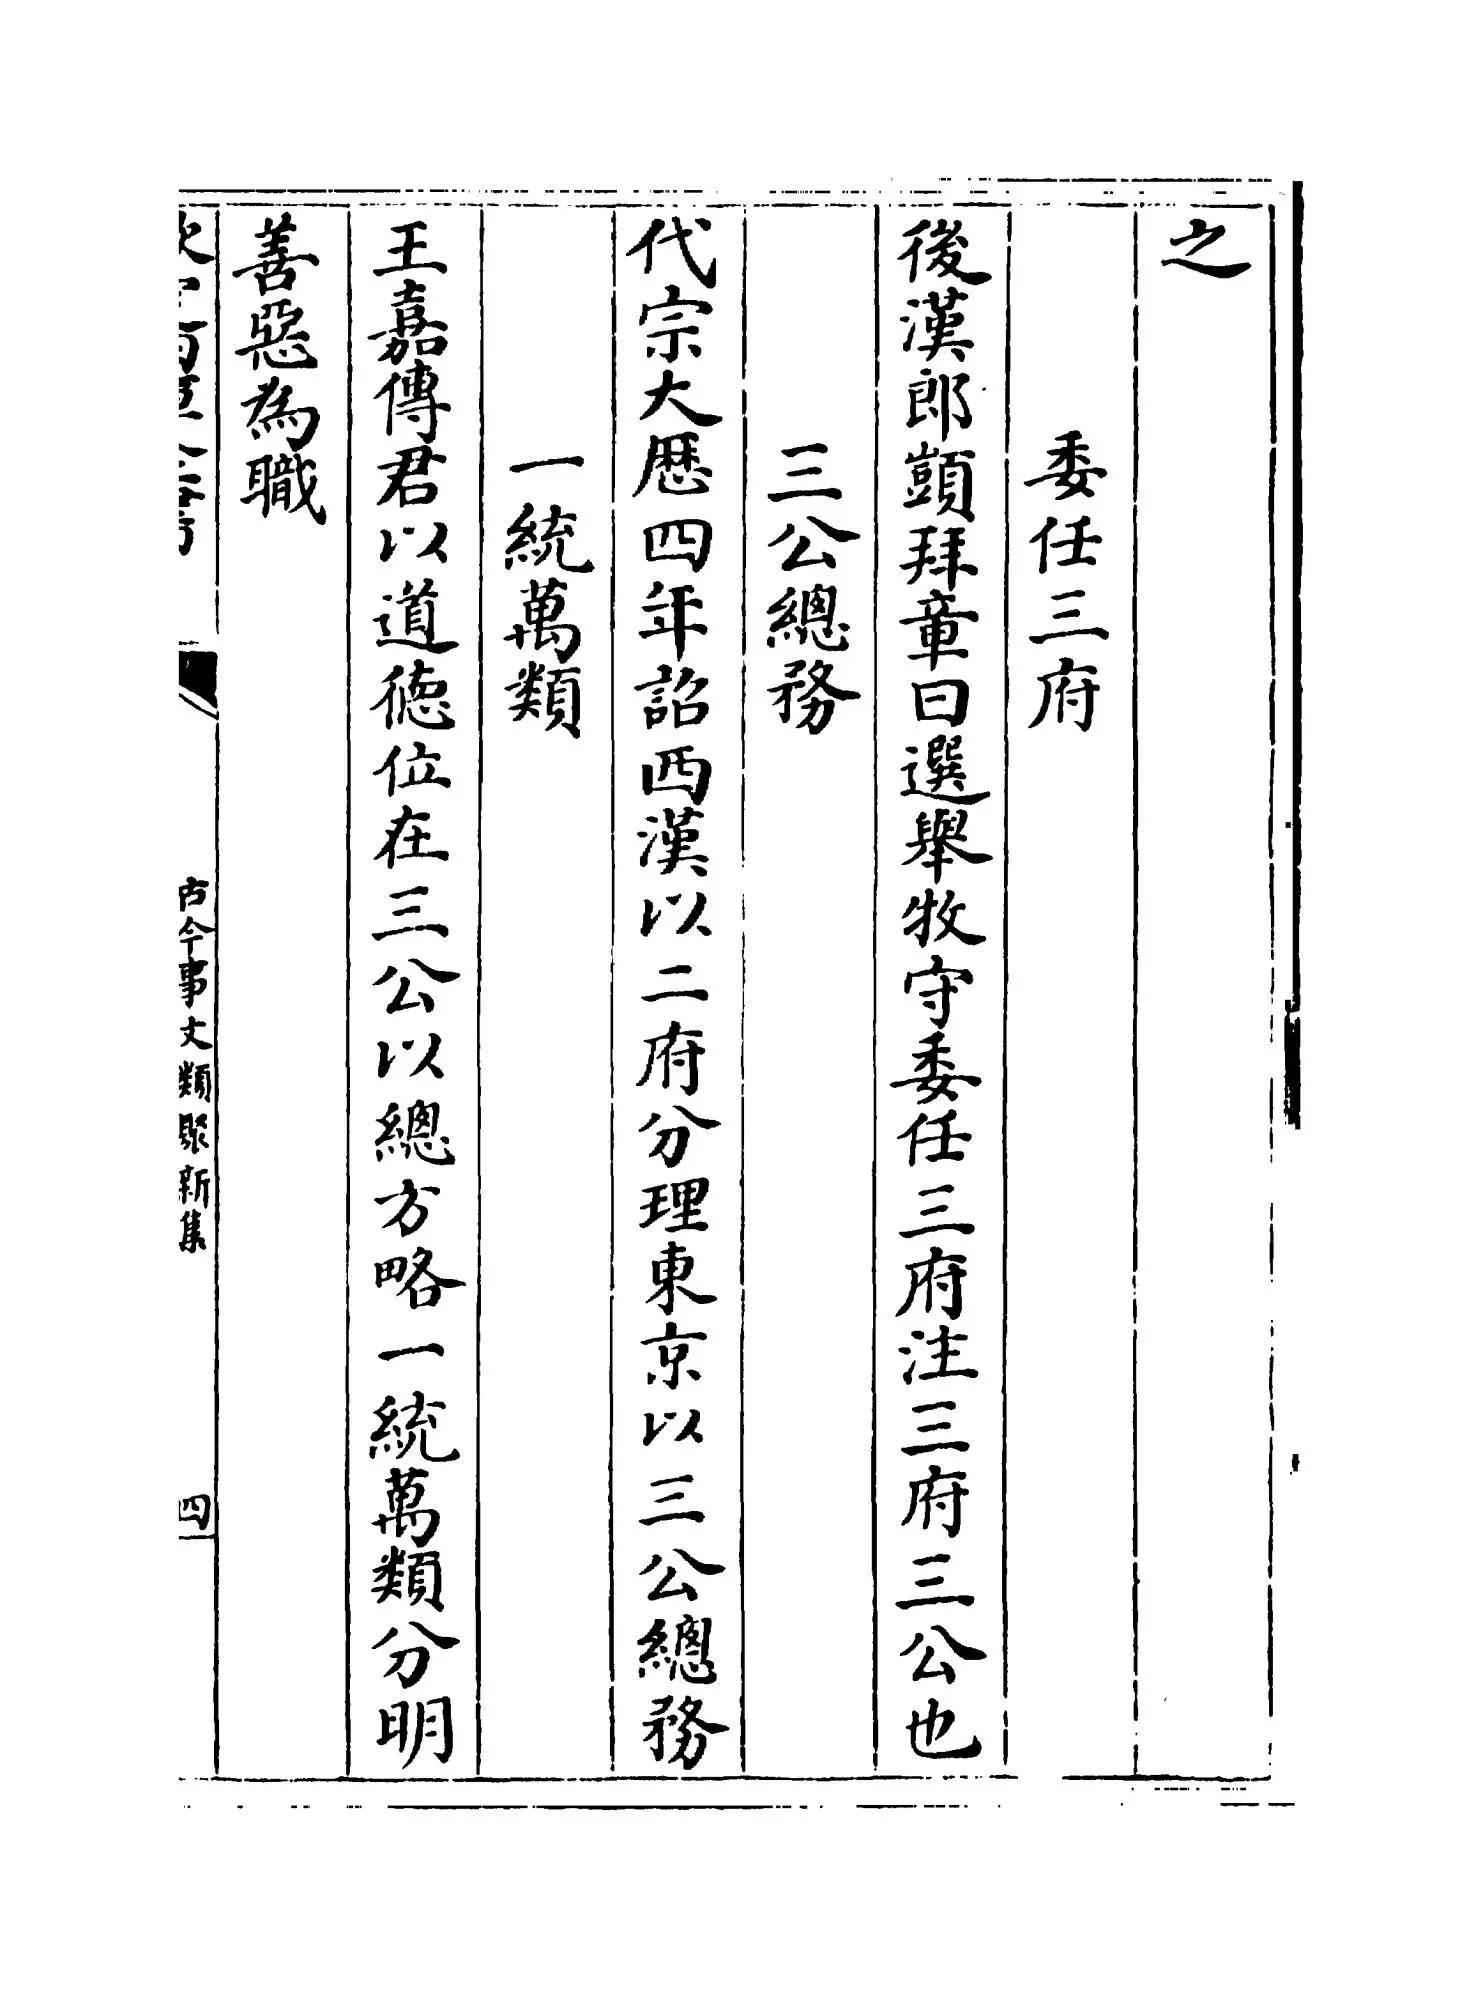 之
委任三府
後漢郎顗拜章曰選舉牧守委任三府注三府三公也
三公總務
代宗大歴四年詔西漢以二府分理東京以三公總務
一統萬類
王嘉傳君以道徳位在三公以總方略一統萬類分明
善惡為職
古今事文類聚新集
四